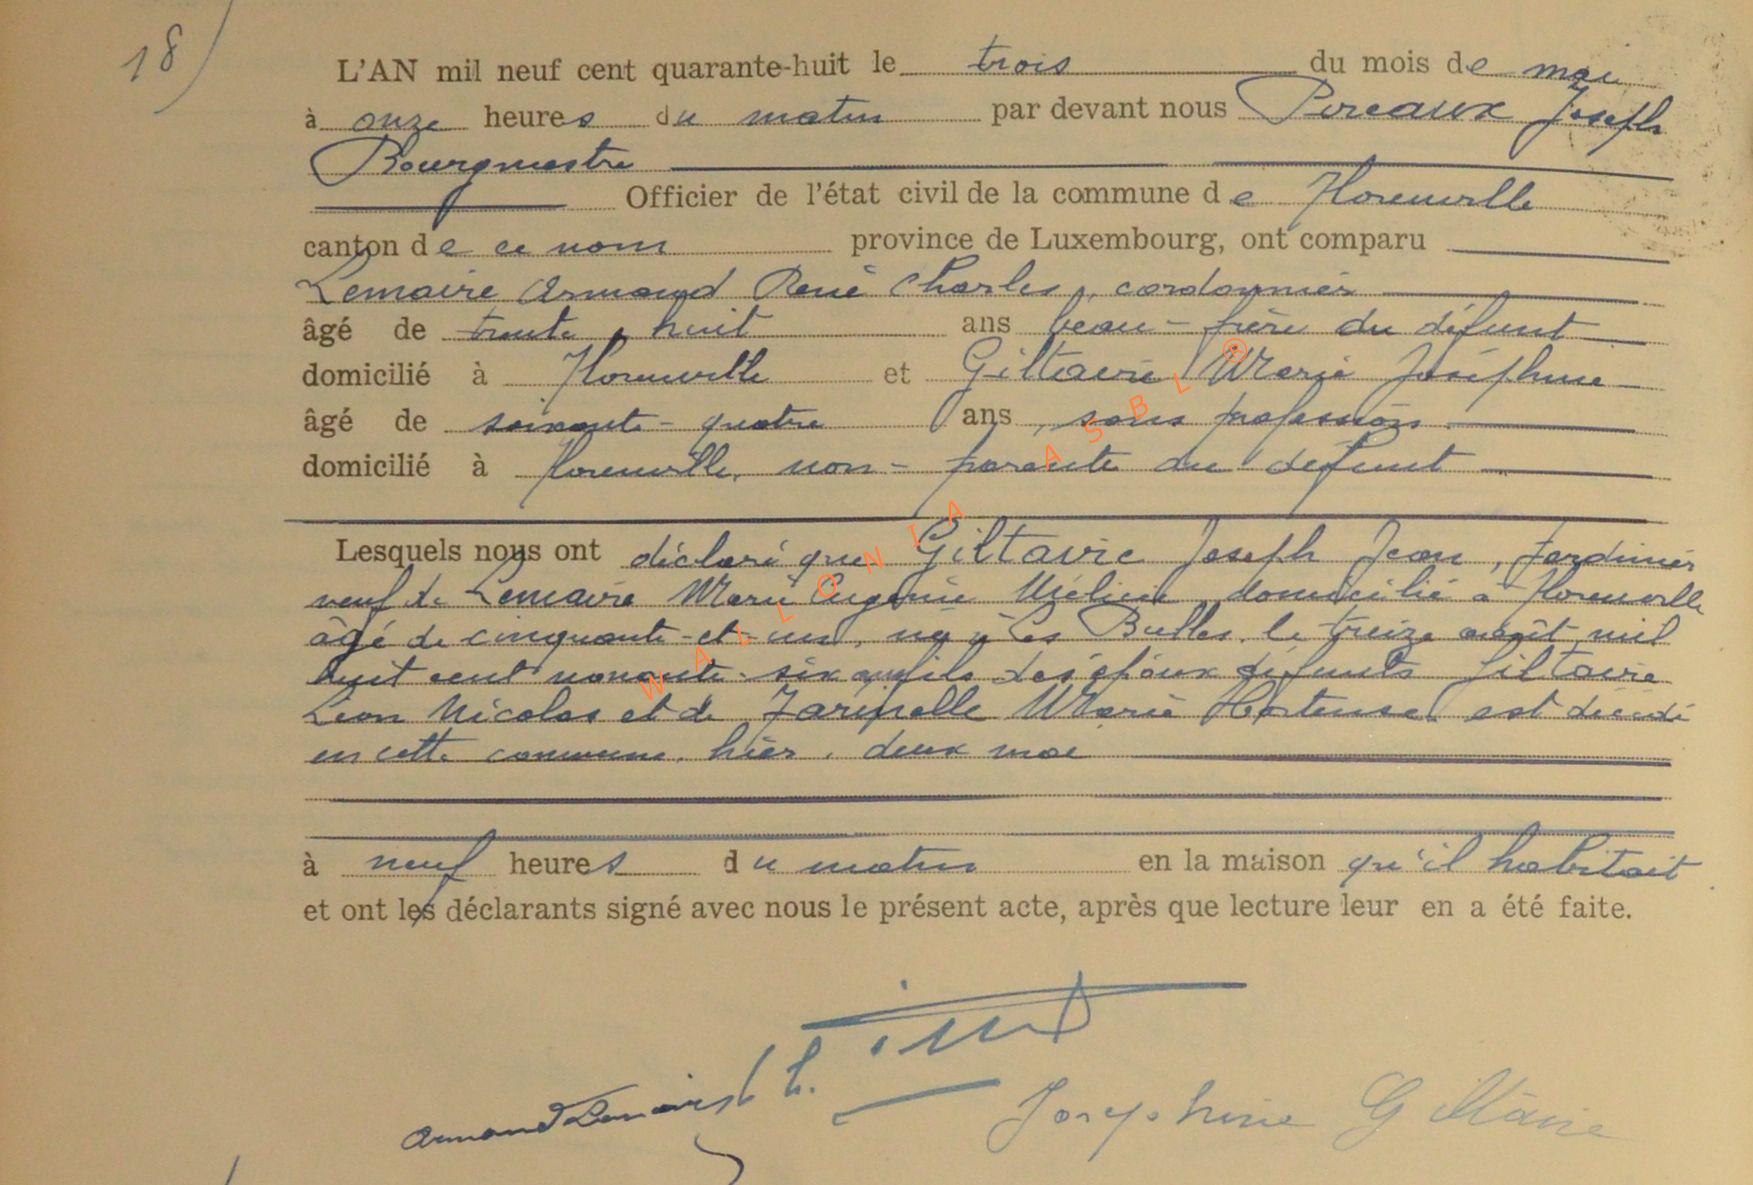 18)
L'AN mil neuf cent quarante-huit le trois du mois de mai
à onze heures du matin par devant nous Pireaux Joseph
Bourgmestre
Officier de l'état civil de la commune de Florenville
canton de ce nom province de Luxembourg, ont comparu
Lemaire Armand René Charles, cordonnier
âgé de trente-huit ans beau-frère du défunt
domicilié à Florenville et Giltaire Marie Joséphine
âgé de soixante-quatre ans, sans profession
domicilié à Florenville, non-parente du défunt
Lesquels nous ont déclaré que Giltaire Joseph Jean, Jardinier
veuf de Lemaire Marie Eugénie Mélinie, domicilié à Florenville
âgé de cinquante-et-un, né à Les Bulles, le treize août mil
huit cent nonante-six fils des époux défunts Giltaire
Léon Nicolas et de Zarinelle Marie Hortense, est décédé
en cette commune, hier, deux mai
à neuf heures du matin en la maison qu'il habitait
et ont les déclarants signé avec nous le présent acte, après que lecture leur en a été faite.
Armand Lemaire
Josephine Giltaire
WALLONIA ASBL ®